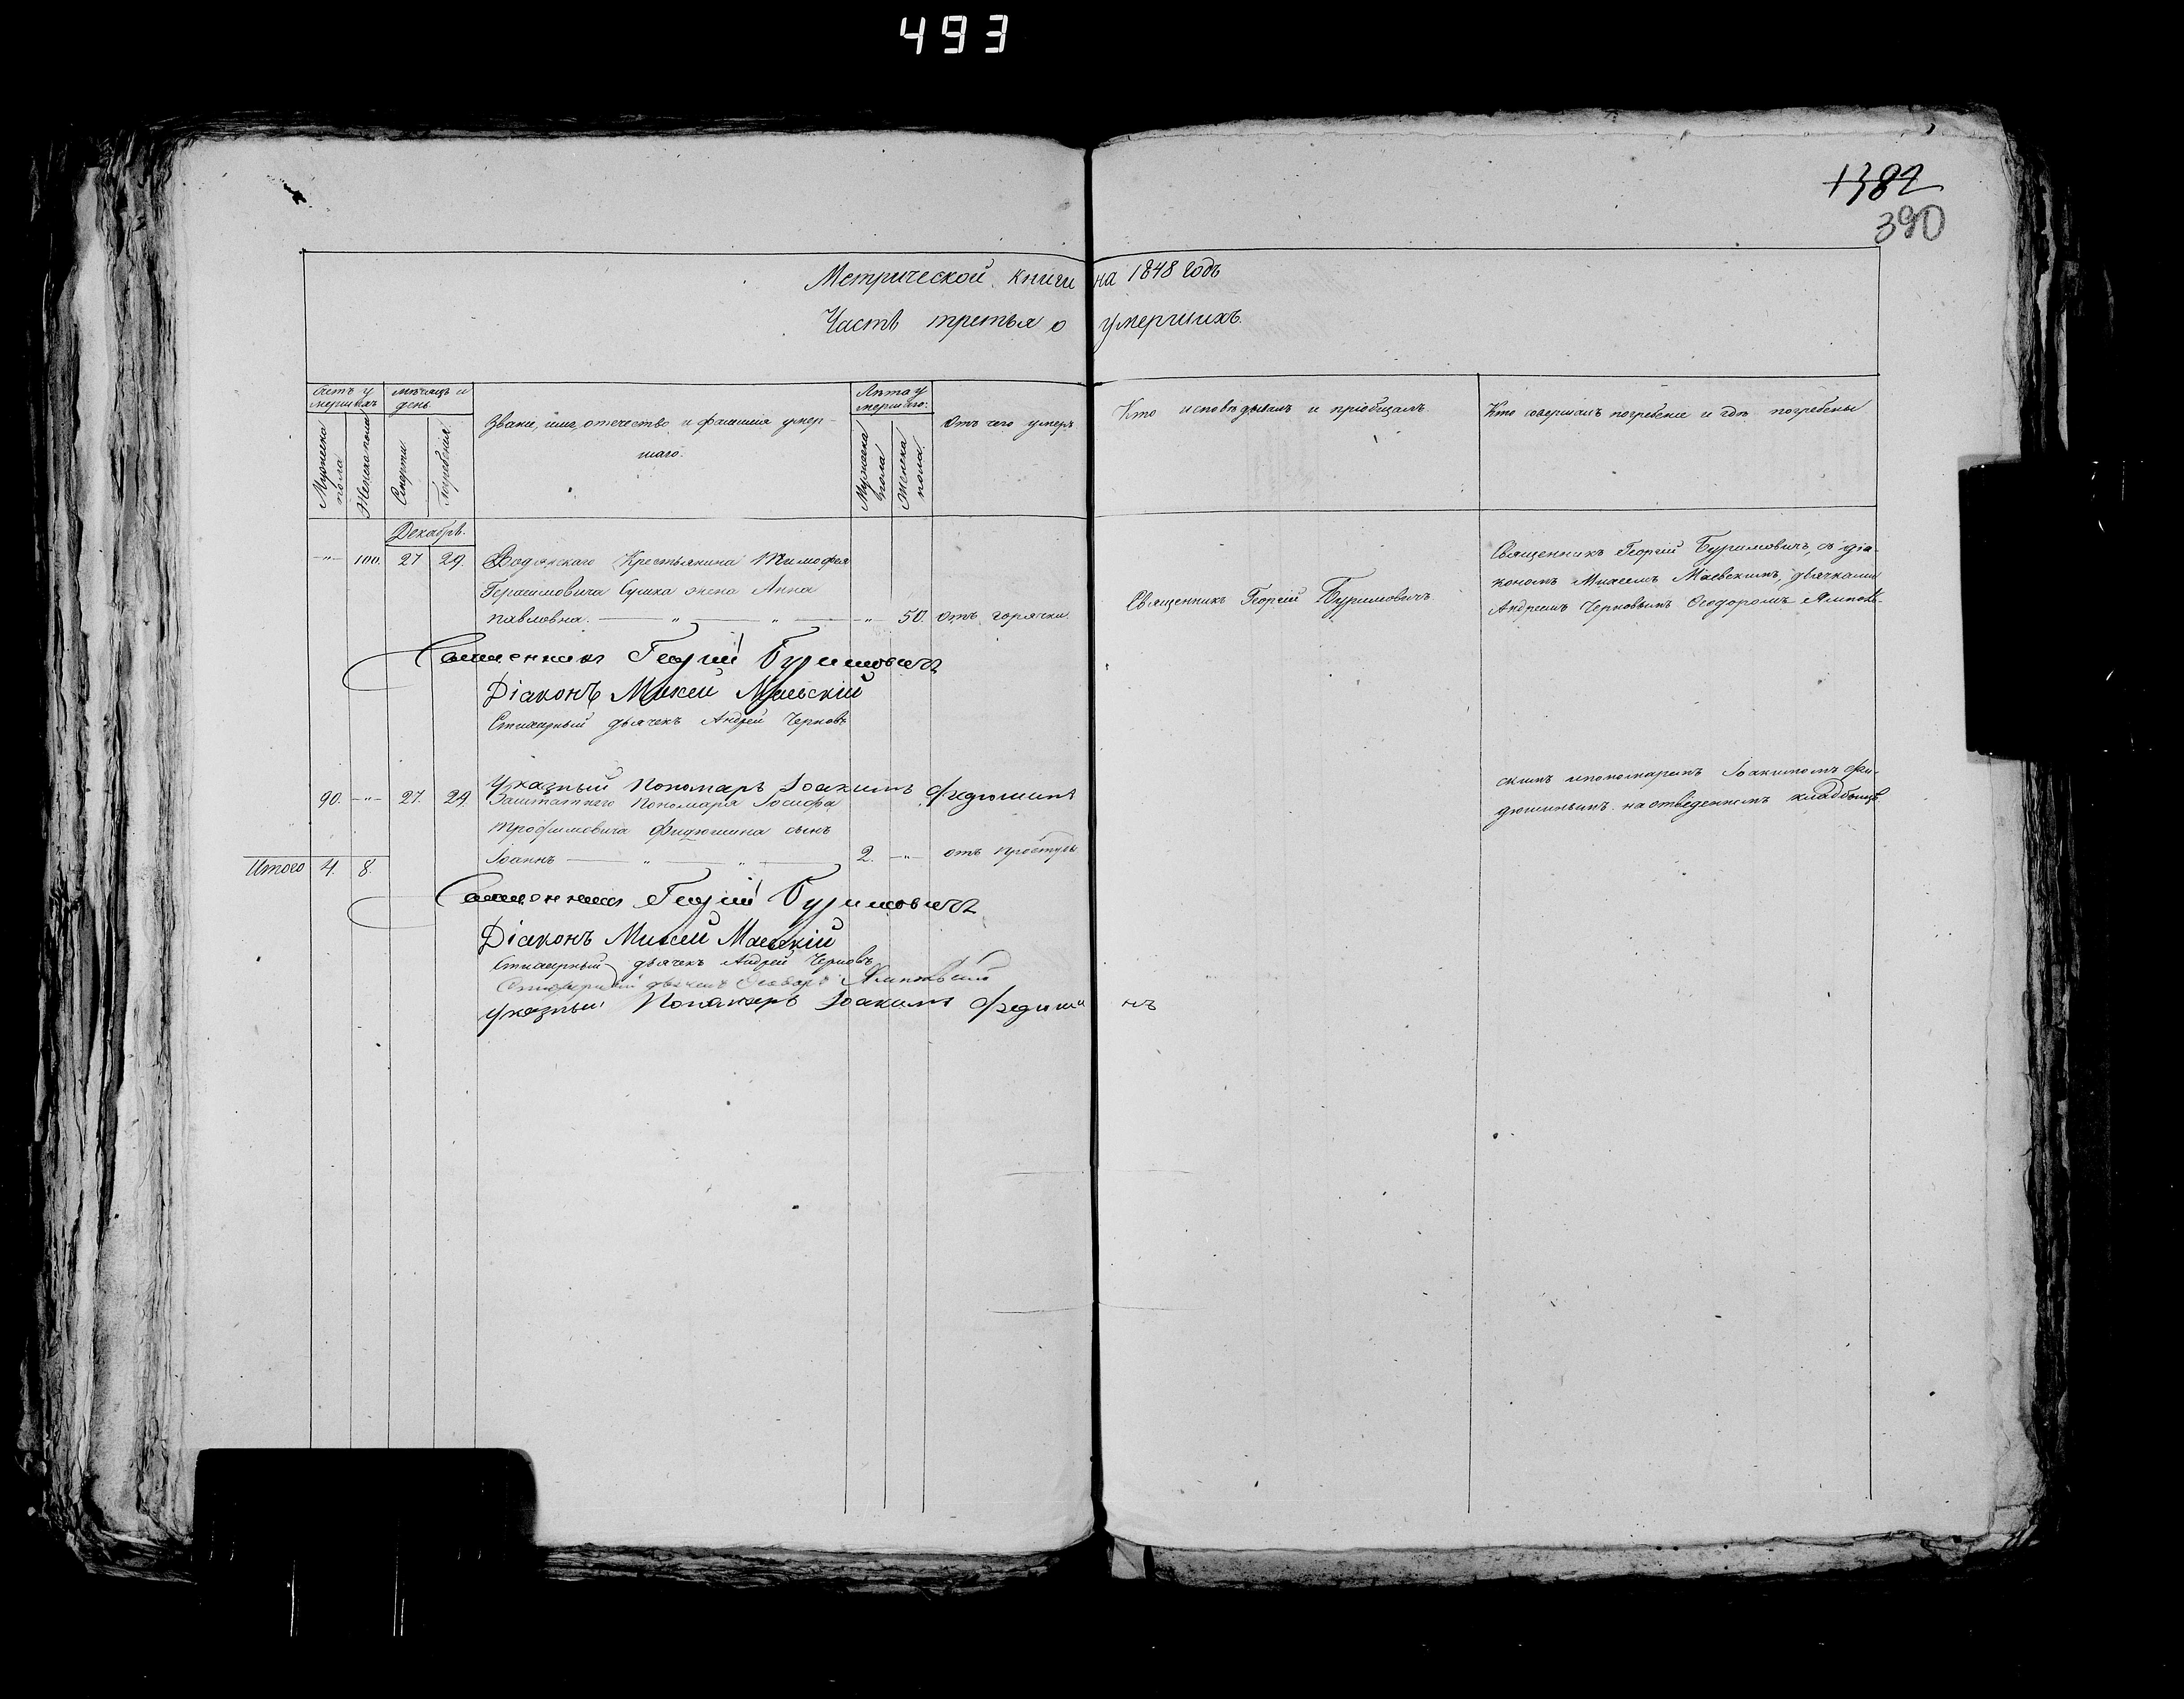 493
1382
390
Метрической книги на 1848 годъ
Часть третья о умершихъ.
Счетъ у
мершихъ
мѣсяцъ и
день.
Званіе, имя, отечество и фамилія умер-
шаго.
Лѣта у
мершаго:
Отъ чего умеръ
Кто исповѣдывалъ и пріобщалъ.
Кто совершалъ погребеніе и гдѣ погребены
Мужеска
пола
Женска пола
Смерти
Погребенія
Мужеска
пола
Женска
пола.
Декабрь.
-"- 100. 27 29. Водянскаго Крестьянина Тимофея
Герасимовича Сушка жена Анна
павловна. " " " 50. отъ горячки.
Священникъ Георгій Буримовичъ
Священникъ Георгій Буримовичъ, съ діа-
кономъ Михеемъ Маевскимъ, дьячками
Андреемъ Черновымъ Ѳеодоромъ Ямполь-
Священникъ Георгій Буримовичъ
Діаконъ Михей Маевскій
Стихарный дьячекъ Андрей Черновъ
Указный Пономарь Іоакимъ Федюшинъ
90. -"- 27. 29. Заштатнаго Пономаря Іосифа
трофимовича Федюшина сынъ
Іоаннъ " " 2. -"- отъ простуды
скимъ ипономаремъ Іоакимомъ Фе-
дюшинымъ. на отведенномъ кладбищѣ.
Итого 4. 8.
Священникъ Георгій Буримовичъ
Діаконъ Михей Маевскій
Стихарный дьячекъ Андрей Черновъ
Стихарный дьячекъ Ѳеодоръ Ямпольскій
указный Пономарь Іоакимъ Федюши нъ